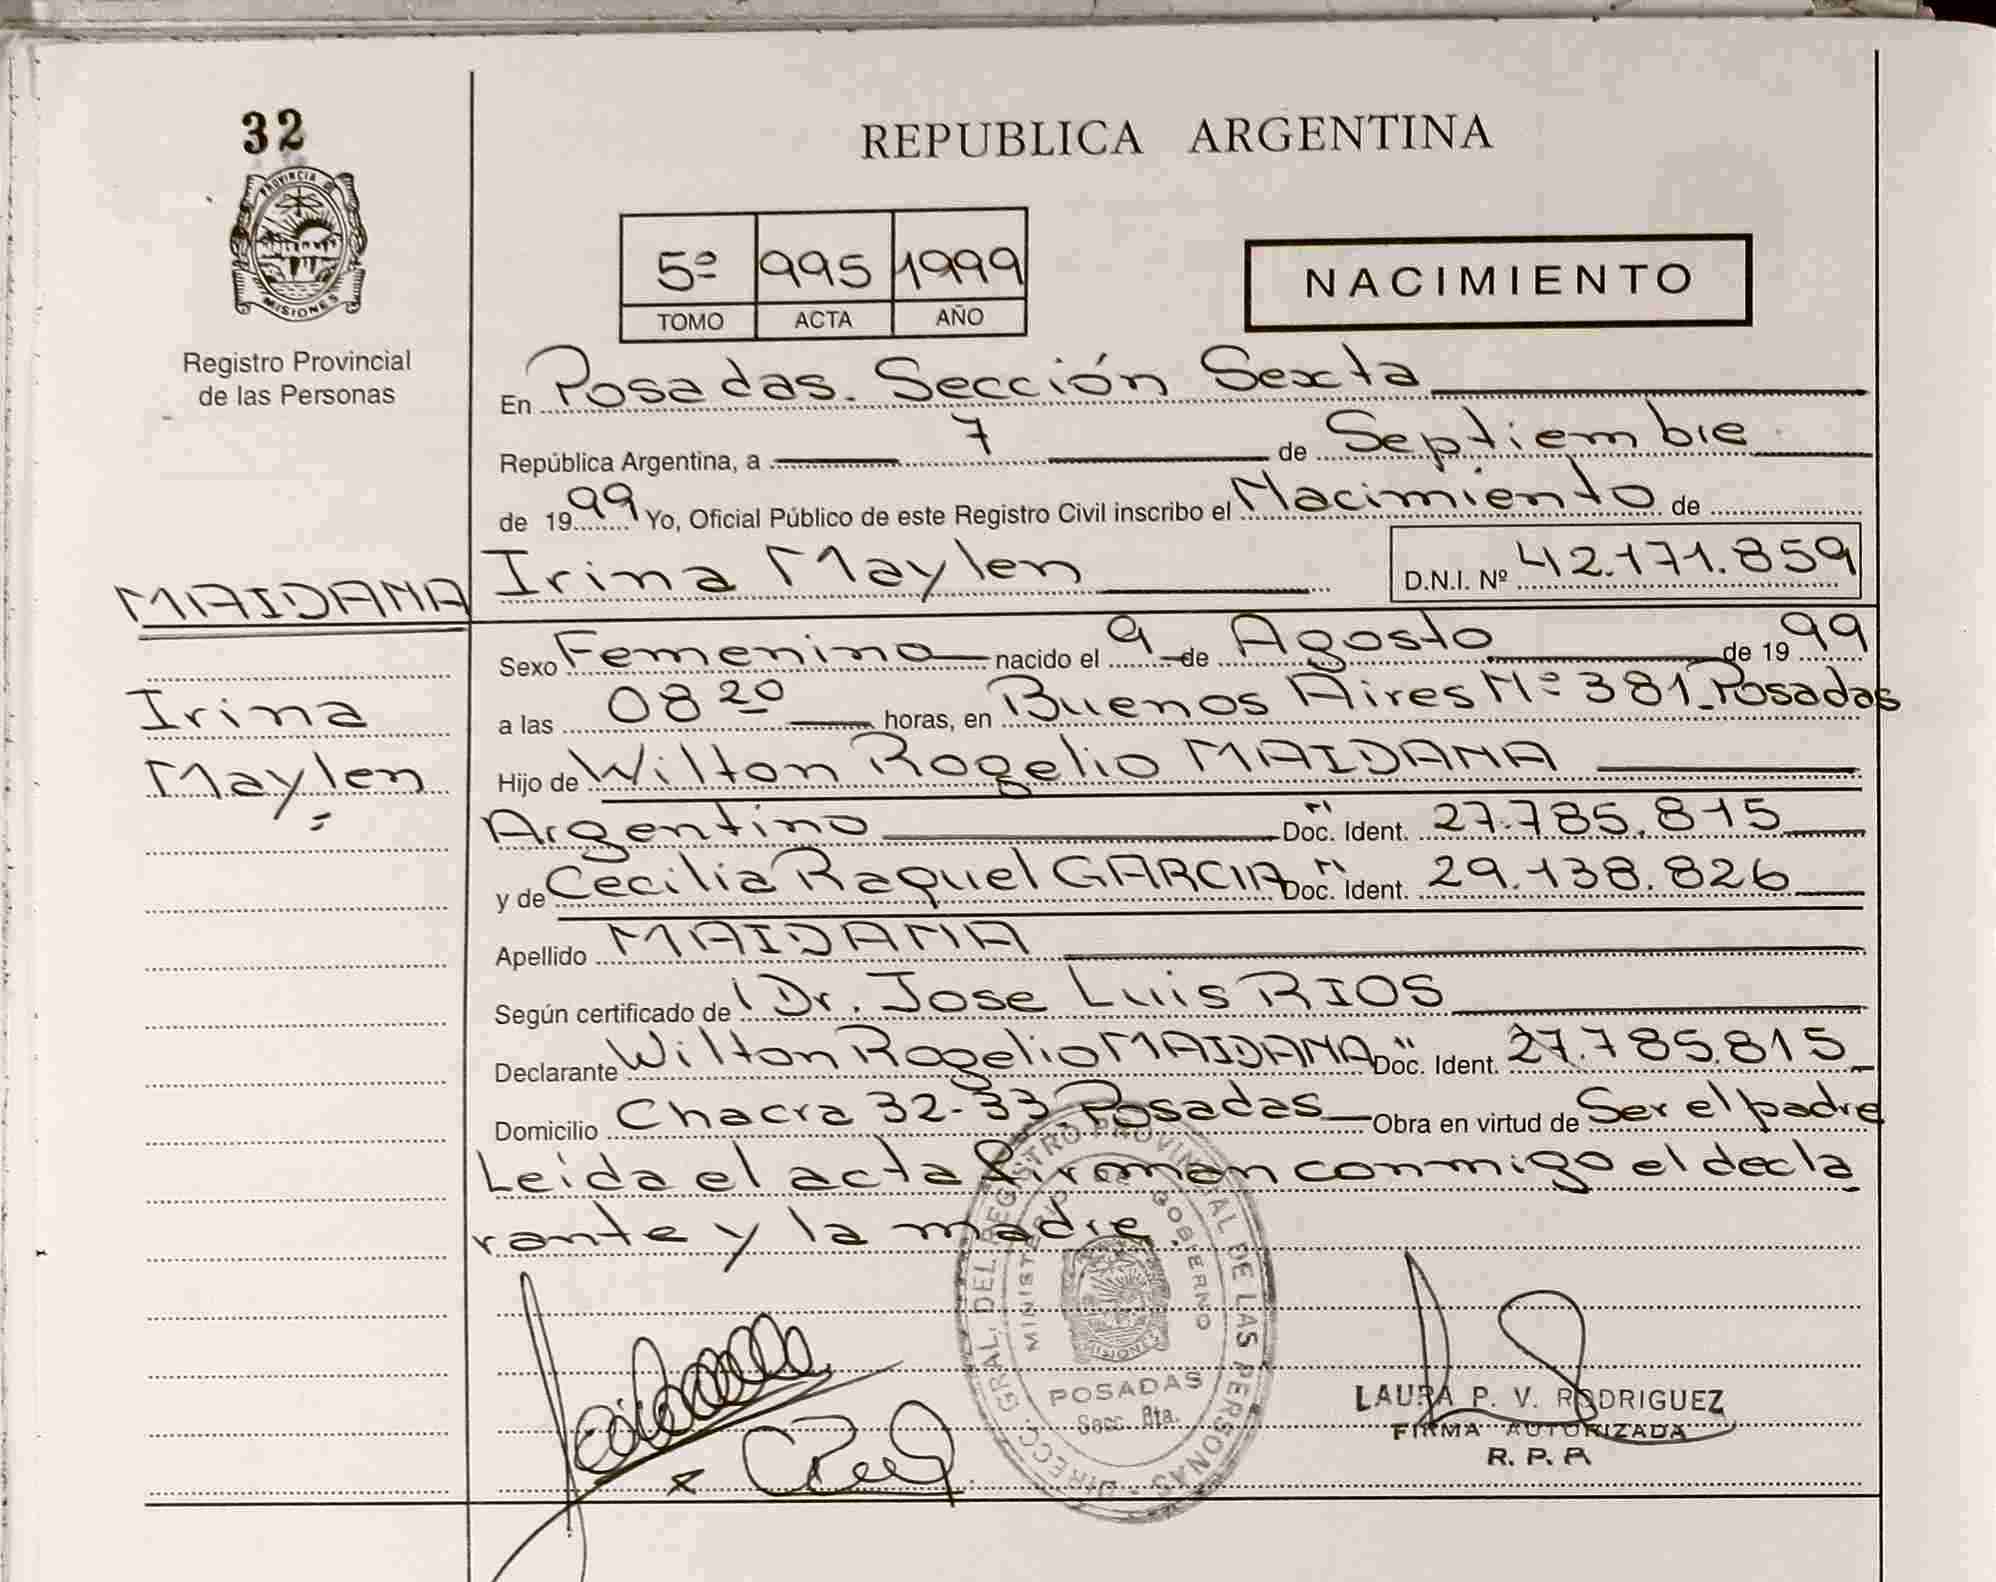 32
PROVINCIA DE
MISIONES
Registro Provincial
de las Personas
MAIDANA
Irina
Maylen
REPUBLICA ARGENTINA
5º 995 1999
TOMO ACTA AÑO
NACIMIENTO
En Posadas. Sección Sexta
República Argentina, a 7 de Septiembre
de 1999 Yo, Oficial Público de este Registro Civil inscribo el Nacimiento de
Irina Maylen D.N.I. Nº 42.171.859
Sexo Femenino nacido el 9 de Agosto de 1999
a las 08 20 horas, en Buenos Aires Nº 381 Posadas
Hijo de Wilton Rogelio MAIDANA
Argentino Doc. Ident. 27.785.815
y de Cecilia Raquel GARCIA Doc. Ident. 29.138.826
Apellido MAIDANA
Según certificado de Dr. Jose Luis RIOS
Declarante Wilton Rogelio MAIDANA Doc. Ident. 27.785.815
Domicilio Chacra 32-33. Posadas Obra en virtud de Ser el padre
Leída el acta firman conmigo el decla
rante y la madre.
DIRECC. GRAL. DEL REGISTRO PROVINCIAL DE LAS PERSONAS
MINISTERIO DE GOBIERNO
MISIONES
POSADAS
Secc. 6ta.
LAURA P. V. RODRIGUEZ
FIRMA AUTORIZADA
R. P. P.